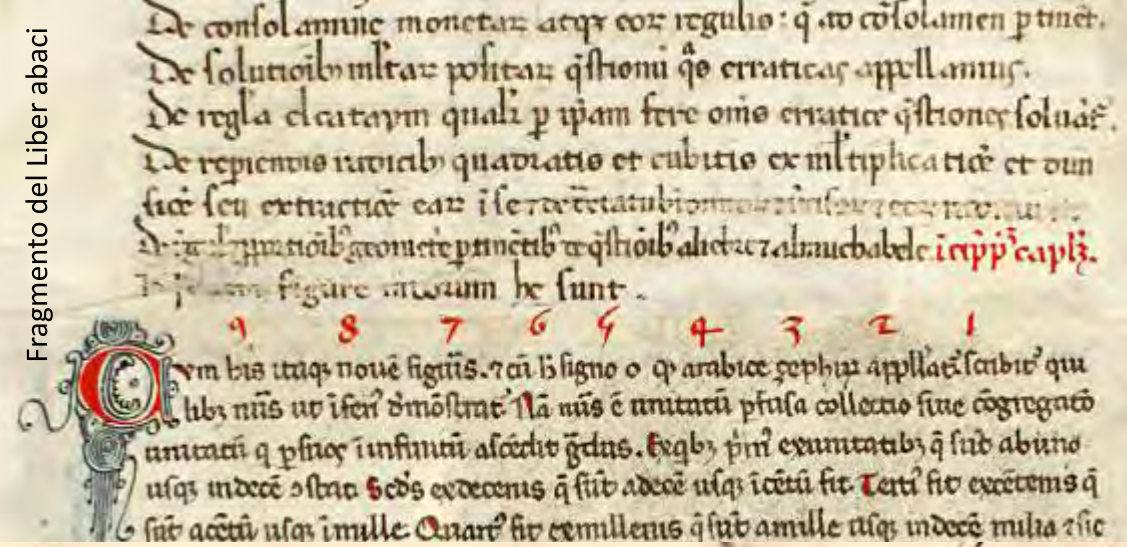 Fragmento del Liber abaci
De consolamine monetaz atqz eoz regulis: q̄ ad cōsolamen ꝑtinēt.
De solutioībꝰ mltaz positaz q̄stionū q̄s erraticas appellamus.
De regl'a elcataym quali ꝑ ip̄am fere om̄s erratice q̄stiones soluāt᷑.
De repiendis radicibꝫ quadratis et cubitis ex ml'tiplicatiōe et diui
siōe seu extractiōe eaz
ptinētibꝰ q̄stiōibꝰ īcip̄ p̄ capl'ꝫ.
figure indorum he sunt.
9 8 7 6 5 4 3 2 1
Cvm his itaqꝫ nouē figuris. ⁊ cū h̄ signo 0 qꝫ arabice zephirum appellat᷑. scribit᷑ qui
libꝫ nūs ut īferiꝰ dmōstrat᷑. Nā nūs ē unitatū pfusa collectio siue cōgregatō
unitatū q̄ ꝑ suos ī infinitū ascēdit gͣdus. Ex qbꝫ pͥmꝰ ex unitatibꝫ q̄ sūt ab uno
usqꝫ in decē ꝯstat. Scds ex decenis q̄ sūt a decē usqꝫ ī cētū fit. Tertiꝰ fit ex cētenis q̄
sūt a cētū usqꝫ ī mille. Quartꝰ fit ex millenis q̄ sūt a mille usqꝫ in decē milia ⁊ sic